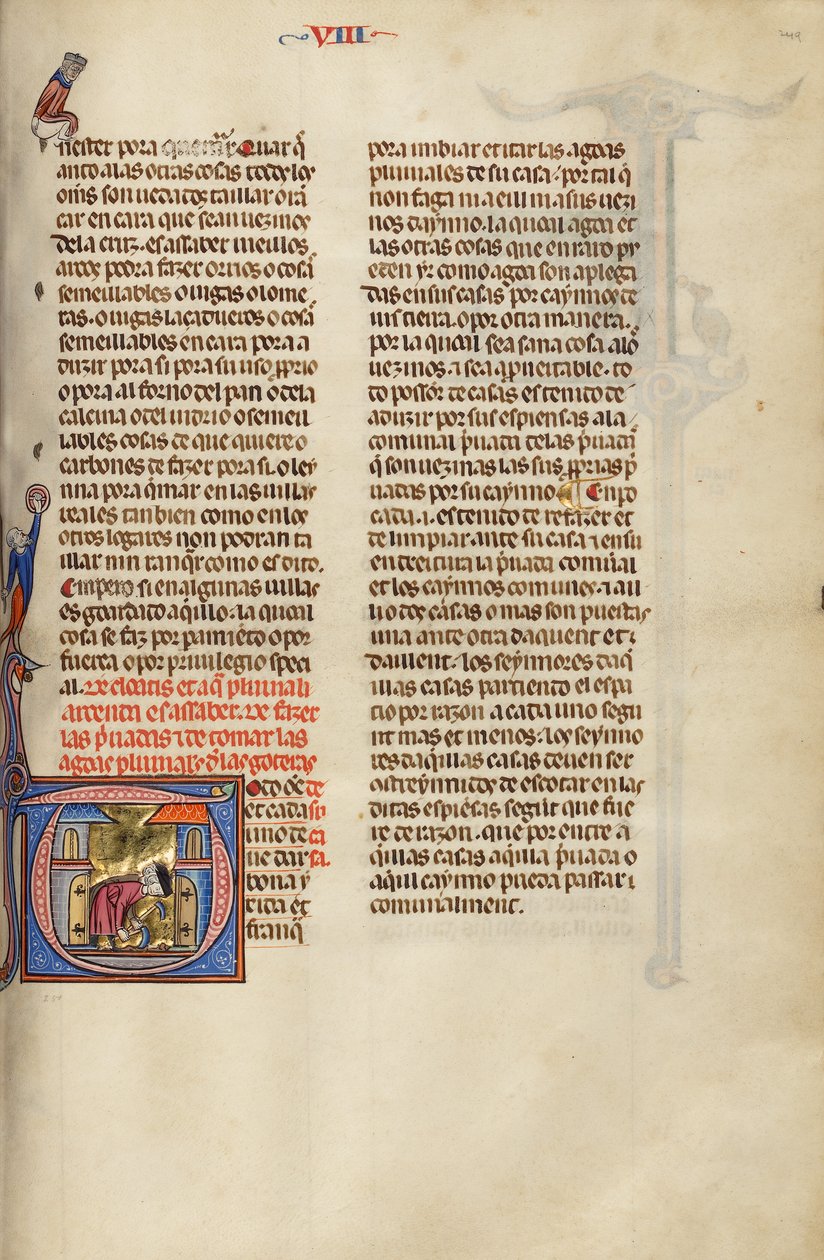 VIII
249
nester pora quemar. Quar q̃
anto a las otras cosas todos los
om̃s son uedados taillar o trã
car encara que sean uezinos
de la cruz. es assaber meillos
ardos podra fazer orrios o cosas
semeillables o uigas o lome
ras. o uigas laçaderos o cosas
semeillables encara pora a
duzir pora si pora su uso p̃prio
o pora al forno del pan o de la
calcina o del uidrio o semeil
lables cosas de que quiere o
carbones de fazer pora si. o ley
nna pora q̃mar en las uillas
reales tanbien como en los
otros logares non podran ta
illar nin tranq̃r como es dito.
Empero si en algunas uillas
es goardado aq̃llo. la quoal
cosa se faz por paramiẽto o por
fuerça o por priuilegio speci
al. De cloacis et aq̃ pluuiali
arcenda es assaber. De fazer
las p̃uadas ⁊ de tomar las
agoas pluuiales d̃ las goteras
Todo õe de
et cada su
uno de ca
ue dar sa.
bona y
rida et
franq̃
pora imbiar et itar las agoas
pluuiales de su casa. por tal q̃
non faga mal ni ma a sus uezi
nos daynno. la quoal agoa et
las otras cosas que en rato pr
eden yr como agoa son aplega
das en sus casas por caynnos de
ius tierra. o por otra manera.
por la quoal sea sana cosa a los
uezinos ⁊ sea ap̃ueitable. to
do possor̃ de casas es tenido de
aduzir por sus espiensas a la
comunal p̃uada de las p̃uadas
q̃ son uezinas las sus p̃prias p̃
uadas por su caynno. Enpo
cada .i. es tenido de refazer et
de limpiar ante su casa ⁊ en su
endreitura la p̃uada comũal
et los caynnos comunes. ⁊ all
li o dos casas o mas son puestas
una ante otra daquent et
dailent. los seynnores daq̃
illas casas partiendo el espa
cio por razon a cada uno segũ
nt mas et menos. los seynno
res daq̃illas casas deuen ser
ostreynnidos de escotar en las
ditas espiẽsas segũt que fue
re de razon. que por entre a
q̃llas casas aq̃lla p̃uada o
aq̃l caynno pueda passar
comunalment.